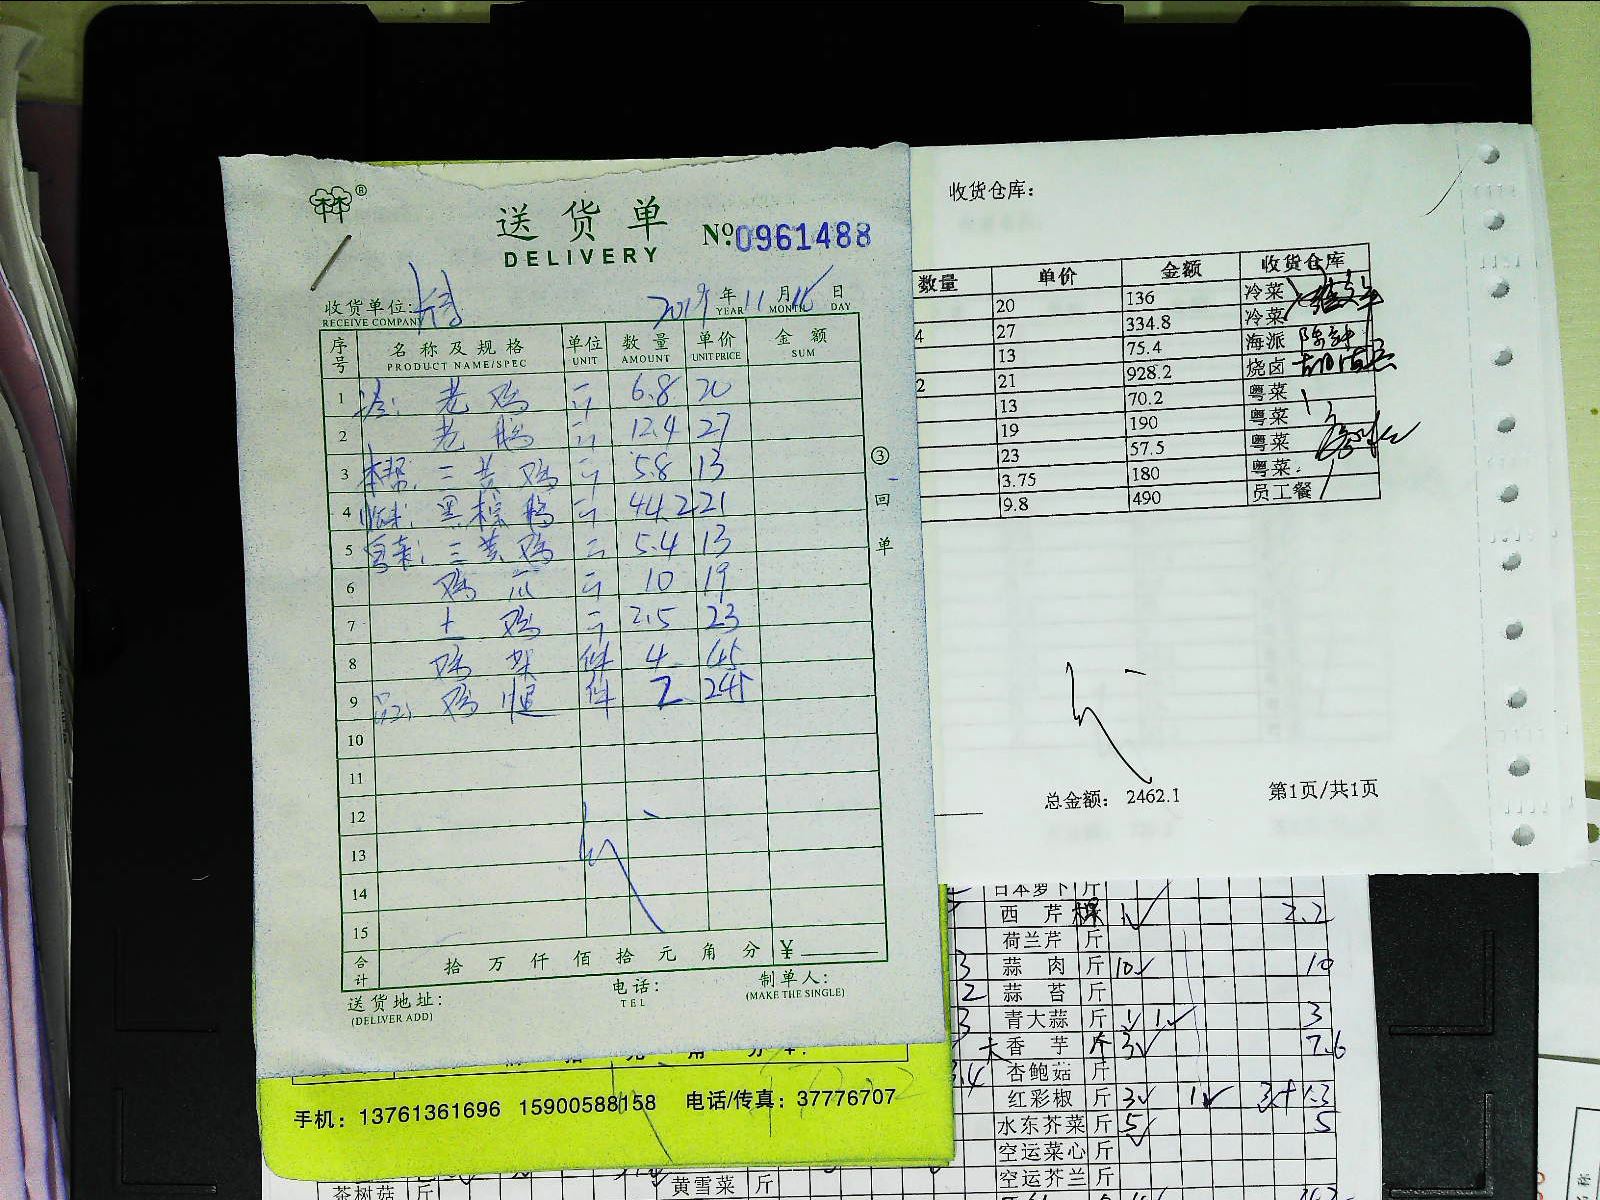 林®
送货单
DELIVERY
№0961488
收货单位:
RECEIVE COMPANY
2019年11月16日
YEAR MONTH DAY
序号 名称及规格 单位 数量 单价 金额
PRODUCT NAME/SPEC UNIT AMOUNT UNIT PRICE SUM
1 老鸡 斤 6.8 20
2 老鸭 斤 12.4 27
3 本帮: 三黄鸡 斤 5.8 13
4 黑棕鹅 斤 44.2 21
5 粤菜: 三黄鸡 斤 5.4 13
6 鸡爪 斤 10 19
7 土鸡 斤 2.5 23
8 鸡架 件 4 45
9 鸡腿 件 2 245
10
11
12
13
14
15
合计 拾万仟佰拾元角分 ¥
送货地址:
(DELIVER ADD)
电话:
TEL
制单人:
(MAKE THE SINGLE)
③回单
手机: 13761361696 15900588158 电话/传真: 37776707
收货仓库:
数量 单价 金额 收货仓库
20 136 冷菜
4 27 334.8 冷菜
13 75.4 海派
2 21 928.2 烧卤
13 70.2 粤菜
19 190 粤菜
23 57.5 粤菜
3.75 180 粤菜
9.8 490 员工餐
总金额: 2462.1 第1页/共1页
日本萝卜 斤
西芹 棵 1 2.2
荷兰芹 斤
3 蒜肉 斤 10 10
2 蒜苔 斤
3 青大蒜 斤 1 1 3
大香芋 个 3 7.6
杏鲍菇 斤
红彩椒 斤 3 1
水东芥菜 斤 5 5
空运菜心 斤
空运芥兰 斤
茶树菇 斤 黄雪菜 斤